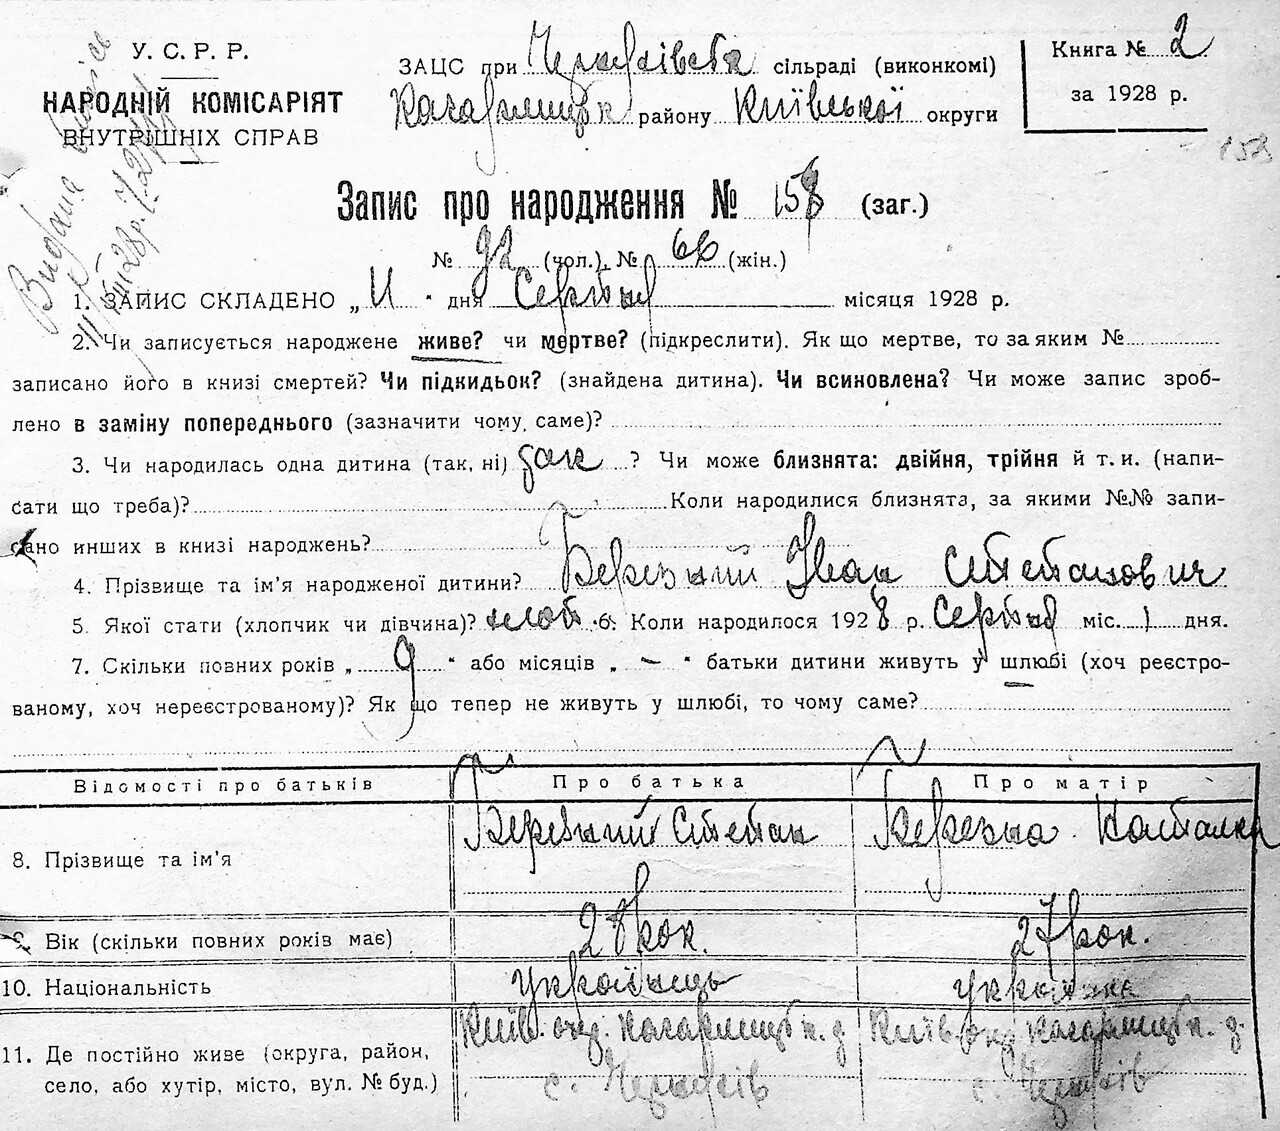 У. С. Р. Р.
НАРОДНІЙ КОМІСАРІЯТ
ВНУТРІШНІХ СПРАВ
Видана
ЗАЦС при сільраді (виконкомі)
Кагарлицьк району Київської округи
Книга № 2
за 1928 р.
158
Запис про народження № 158 (заг.)
№ 92 (чол.), № 66 (жін.)
1. ЗАПИС СКЛАДЕНО „ 11 " дня Серпня місяця 1928 р.
2. Чи записується народжене живе? чи мертве? (підкреслити). Як що мертве, то за яким №
записано його в книзі смертей? Чи підкидьок? (знайдена дитина). Чи всиновлена? Чи може запис зроб-
лено в заміну попереднього (зазначити чому, саме)?
3. Чи народилась одна дитина (так, ні) так ? Чи може близнята: двійня, трійня й т. и. (напи-
сати що треба)? Коли народилися близнята, за якими №№ запи-
сано инших в книзі народжень?
4. Прізвище та ім'я народженої дитини? Березний Іван Степанович
5. Якої стати (хлопчик чи дівчина)? хлоп. 6. Коли народилося 1928 р. Серпня міс. 1 дня.
7. Скільки повних років „ 9 " або місяців „ — " батьки дитини живуть у шлюбі (хоч реєстро-
ваному, хоч нереєстрованому)? Як що тепер не живуть у шлюбі, то чому саме?
Відомості про батьків Про батька Про матір
8. Прізвище та ім'я Березний Степан Березна
9. Вік (скільки повних років має) 28 рок. 27 рок.
10. Національність Українець Українка
11. Де постійно живе (округа, район, Київ. окр. Кагарлицьк. р. Київ. окр. Кагарлицьк. р.
село, або хутір, місто, вул. № буд.) с. с.